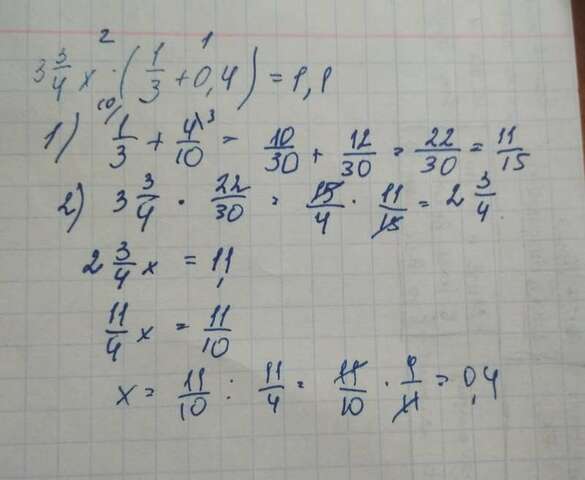 2 1
3 3/4 x · (1/3 + 0,4) = 1,1
1) 1/3 + 4/10 = 10/30 + 12/30 = 22/30 = 11/15
2) 3 3/4 · 22/30 = 15/4 · 11/15 = 2 3/4
2 3/4 x = 1,1
11/4 x = 11/10
x = 11/10 : 11/4 = 11/10 · 4/11 = 0,4